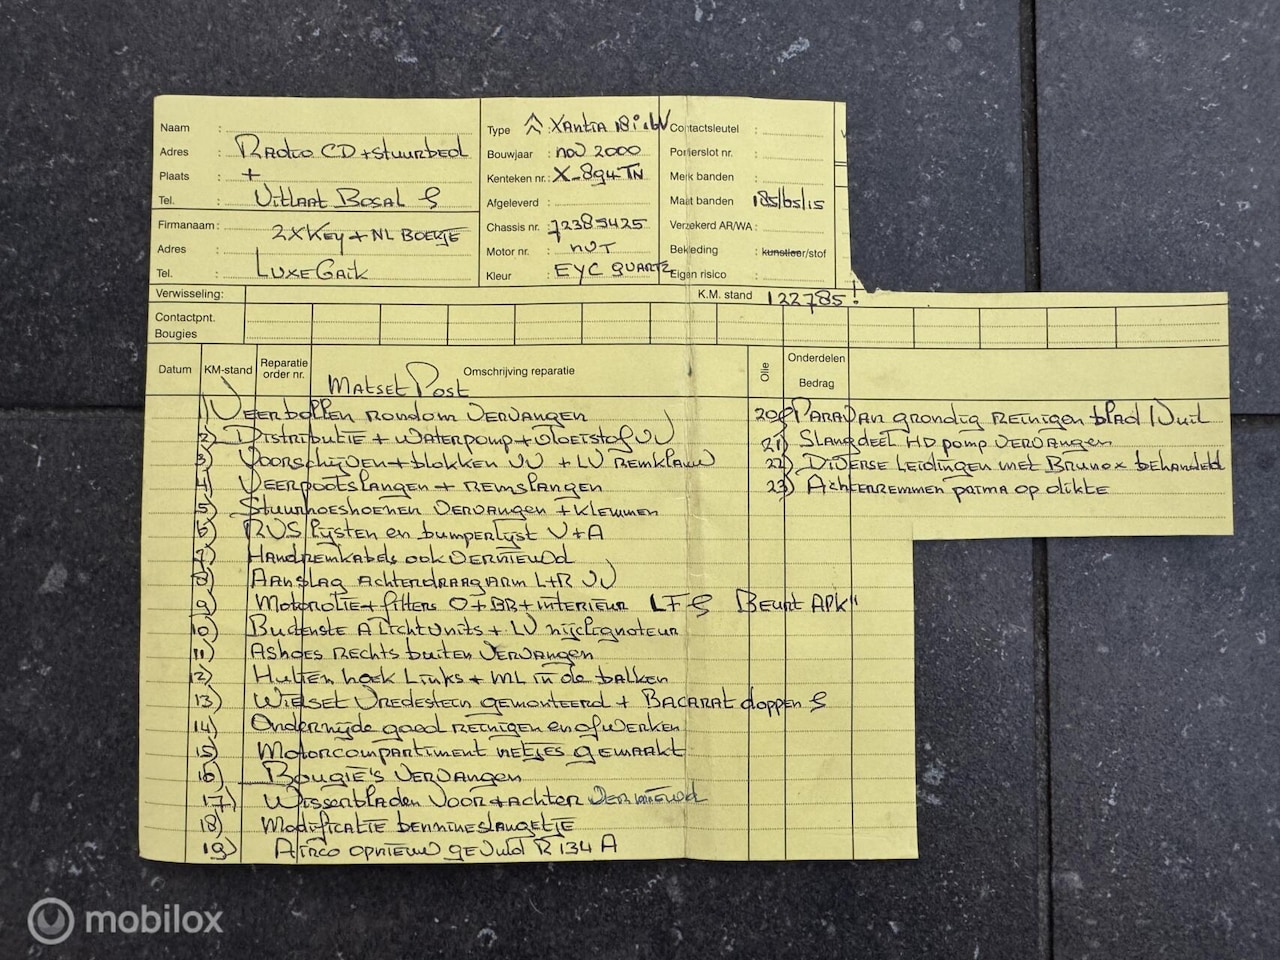 Naam :
Adres : Radio CD + stuurbed
Plaats : +
Tel. : Uitlaat Bosal
Firmanaam : 2x Key + NL Boekje
Adres :
Tel. : Luxe Gaik
Type : Xantia 1.8i 16V
Bouwjaar : nov 2000
Kenteken nr. : X-894 TN
Afgeleverd :
Chassis nr. : 72385425
Motor nr. :
Kleur : EYC Quartz
Contactsleutel :
Portierslot nr. :
Merk banden :
Maat banden 185/65/15
Verzekerd AR/WA :
Bekleding : kunstleer/stof
Eigen risico :
Verwisseling:
K.M. stand 122785!
Contactpnt.
Bougies
Datum KM-stand Reparatie order nr. Omschrijving reparatie Olie Onderdelen Bedrag
Matset Post
1) Veerbollen rondom vervangen
2) Distributie + waterpomp + vloeistof VV
3) Voorschijven + blokken VV + LV remklauw
4) Veerpootslangen + remslangen
5) Stuurhoeshoenen vervangen + klemmen
6) RVS lijsten en bumperlijst V+A
7) Handremkabels ook vernieuwd
8) Aanslag achterdraagarm L+R VV
9) Motorolie + filters O+BB+interieur LF Beurt APK"
10) Buitenste Alichtunits + LV mistlignateur
11) Ashoes rechts buiten vervangen
12) Hullen hoek links + ML in de balken
13) Wielset Vredestein gemonteerd + Bacarat doppen
14) Onderzijde goed reinigen en afwerken
15) Motorcompartiment netjes gemaakt
16) Bougie's vervangen
17) Wisserbladen voor + achter vernieuwd
18) Modificatie bennineslangetje
19) Airco opnieuw gevuld R134A
20) Paravan grondig reinigen blad Vuil
21) Slangdeel HD pomp vervangen
22) Diverse leidingen met Brunox behandeld
23) Achterremmen prima op dikte
mobilox